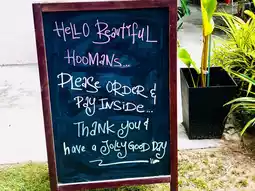 Hello Beautiful
Hoomans...
Please order &
Pay inside...
Thank you &
have a Jolly Good Day